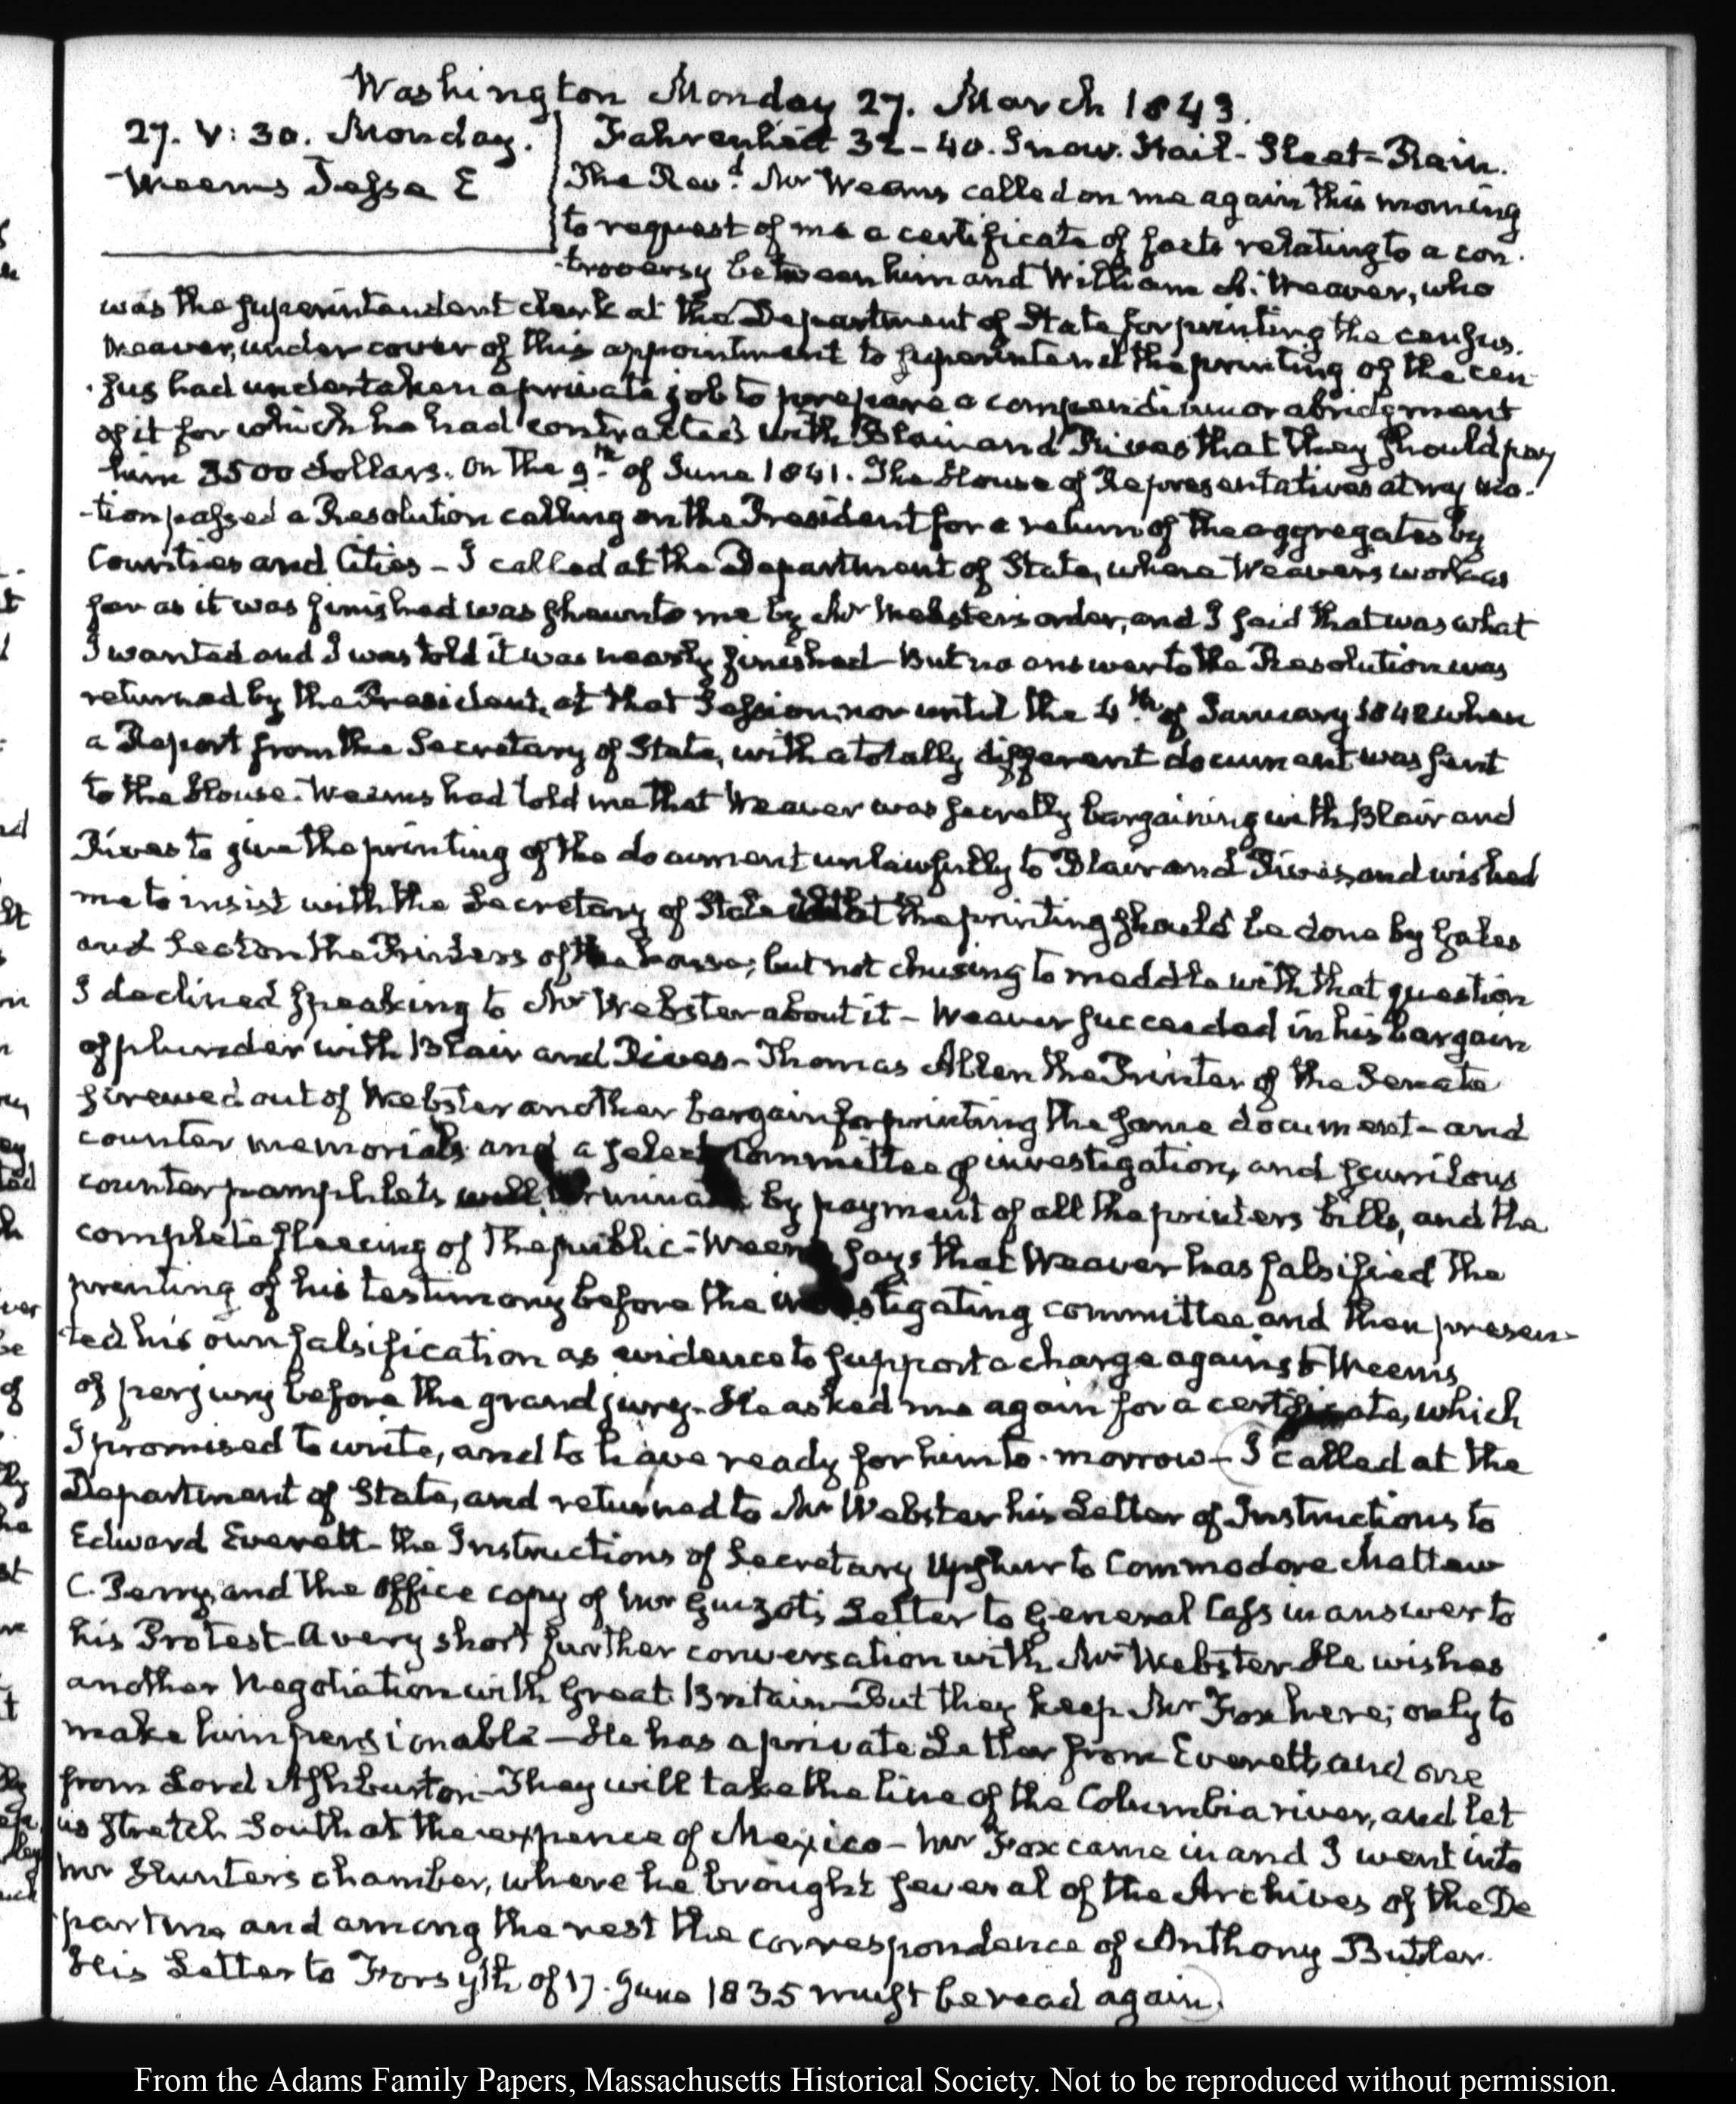 Washington Monday 27. March 1843.
27. V: 30. Monday.
Weems Jesse E
Fahrenheit 32-40. Snow. Hail-Sleet-Rain.
The Revd. Mr Weems called on me again this morning
to request of me a certificate of facts relating to a con-
-troversy between him and William A. Weaver, who
was the superintendent clerk at the Department of State for printing the census.
Weaver, under cover of this appointment to superintend the printing of the cen-
-sus had undertaken a private job to prepare a compendium or abridgment
of it for which he had contracted with Blair and Rives that they should pay
him 3500 dollars. On the 9th. of June 1841. The House of Representatives at my mo-
-tion passed a Resolution calling on the President for a return of the aggregates by
Counties and Cities - I called at the Department of State, where Weavers work as
far as it was finished was shewn to me by Mr Webster's order, and I said that was what
I wanted and I was told it was nearly finished - But no answer to the Resolution was
returned by the President, at that Session, nor until the 4th. of January 1842 when
a Report from the Secretary of State, with a totally different document was sent
to the House. Weems had told me that Weaver was secretly bargaining with Blair and
Rives to give the printing of the document unlawfully to Blair and Rives, and wished
me to insist with the Secretary of State that the printing should be done by Gales
and Seaton the Printers of the house; but not chusing to meddle with that question
I declined speaking to Mr Webster about it - Weaver succeeded in his bargain
of plunder with Blair and Rives - Thomas Allen the Printer of the Senate
screwed out of Webster another bargain for printing the same document - and
counter memorials and a select Committee of investigation, and scurrilous
counter pamphlets will terminate by payment of all the printers bills, and the
complete fleecing of the public - Weems says that Weaver has falsified the
printing of his testimony before the investigating committee and then presen-
-ted his own falsification as evidence to support a charge against Weems
of perjury before the grand jury. He asked me again for a certificate, which
I promised to write, and to have ready for him to-morrow - I called at the
Department of State, and returned to Mr Webster his Letter of Instructions to
Edward Everett - the Instructions of Secretary Upshur to Commodore Mattew
C. Perry, and the office copy of Mr Guizot's Letter to General Cass in answer to
his Protest - A very short further conversation with Mr Webster. He wishes
another Negotiation with Great Britain - But they keep Mr Fox here; only to
make him pensionable - He has a private Letter from Everett, and one
from Lord Ashburton - They will take the line of the Columbia river, and let
us stretch South at the expence of Mexico - Mr Fox came in and I went into
Mr Hunter's chamber, where he brought several of the Archives of the De
partme and among the rest the correspondence of Anthony Butler.
His Letter to Forsyth of 17. June 1835 must be read again.
From the Adams Family Papers, Massachusetts Historical Society. Not to be reproduced without permission.